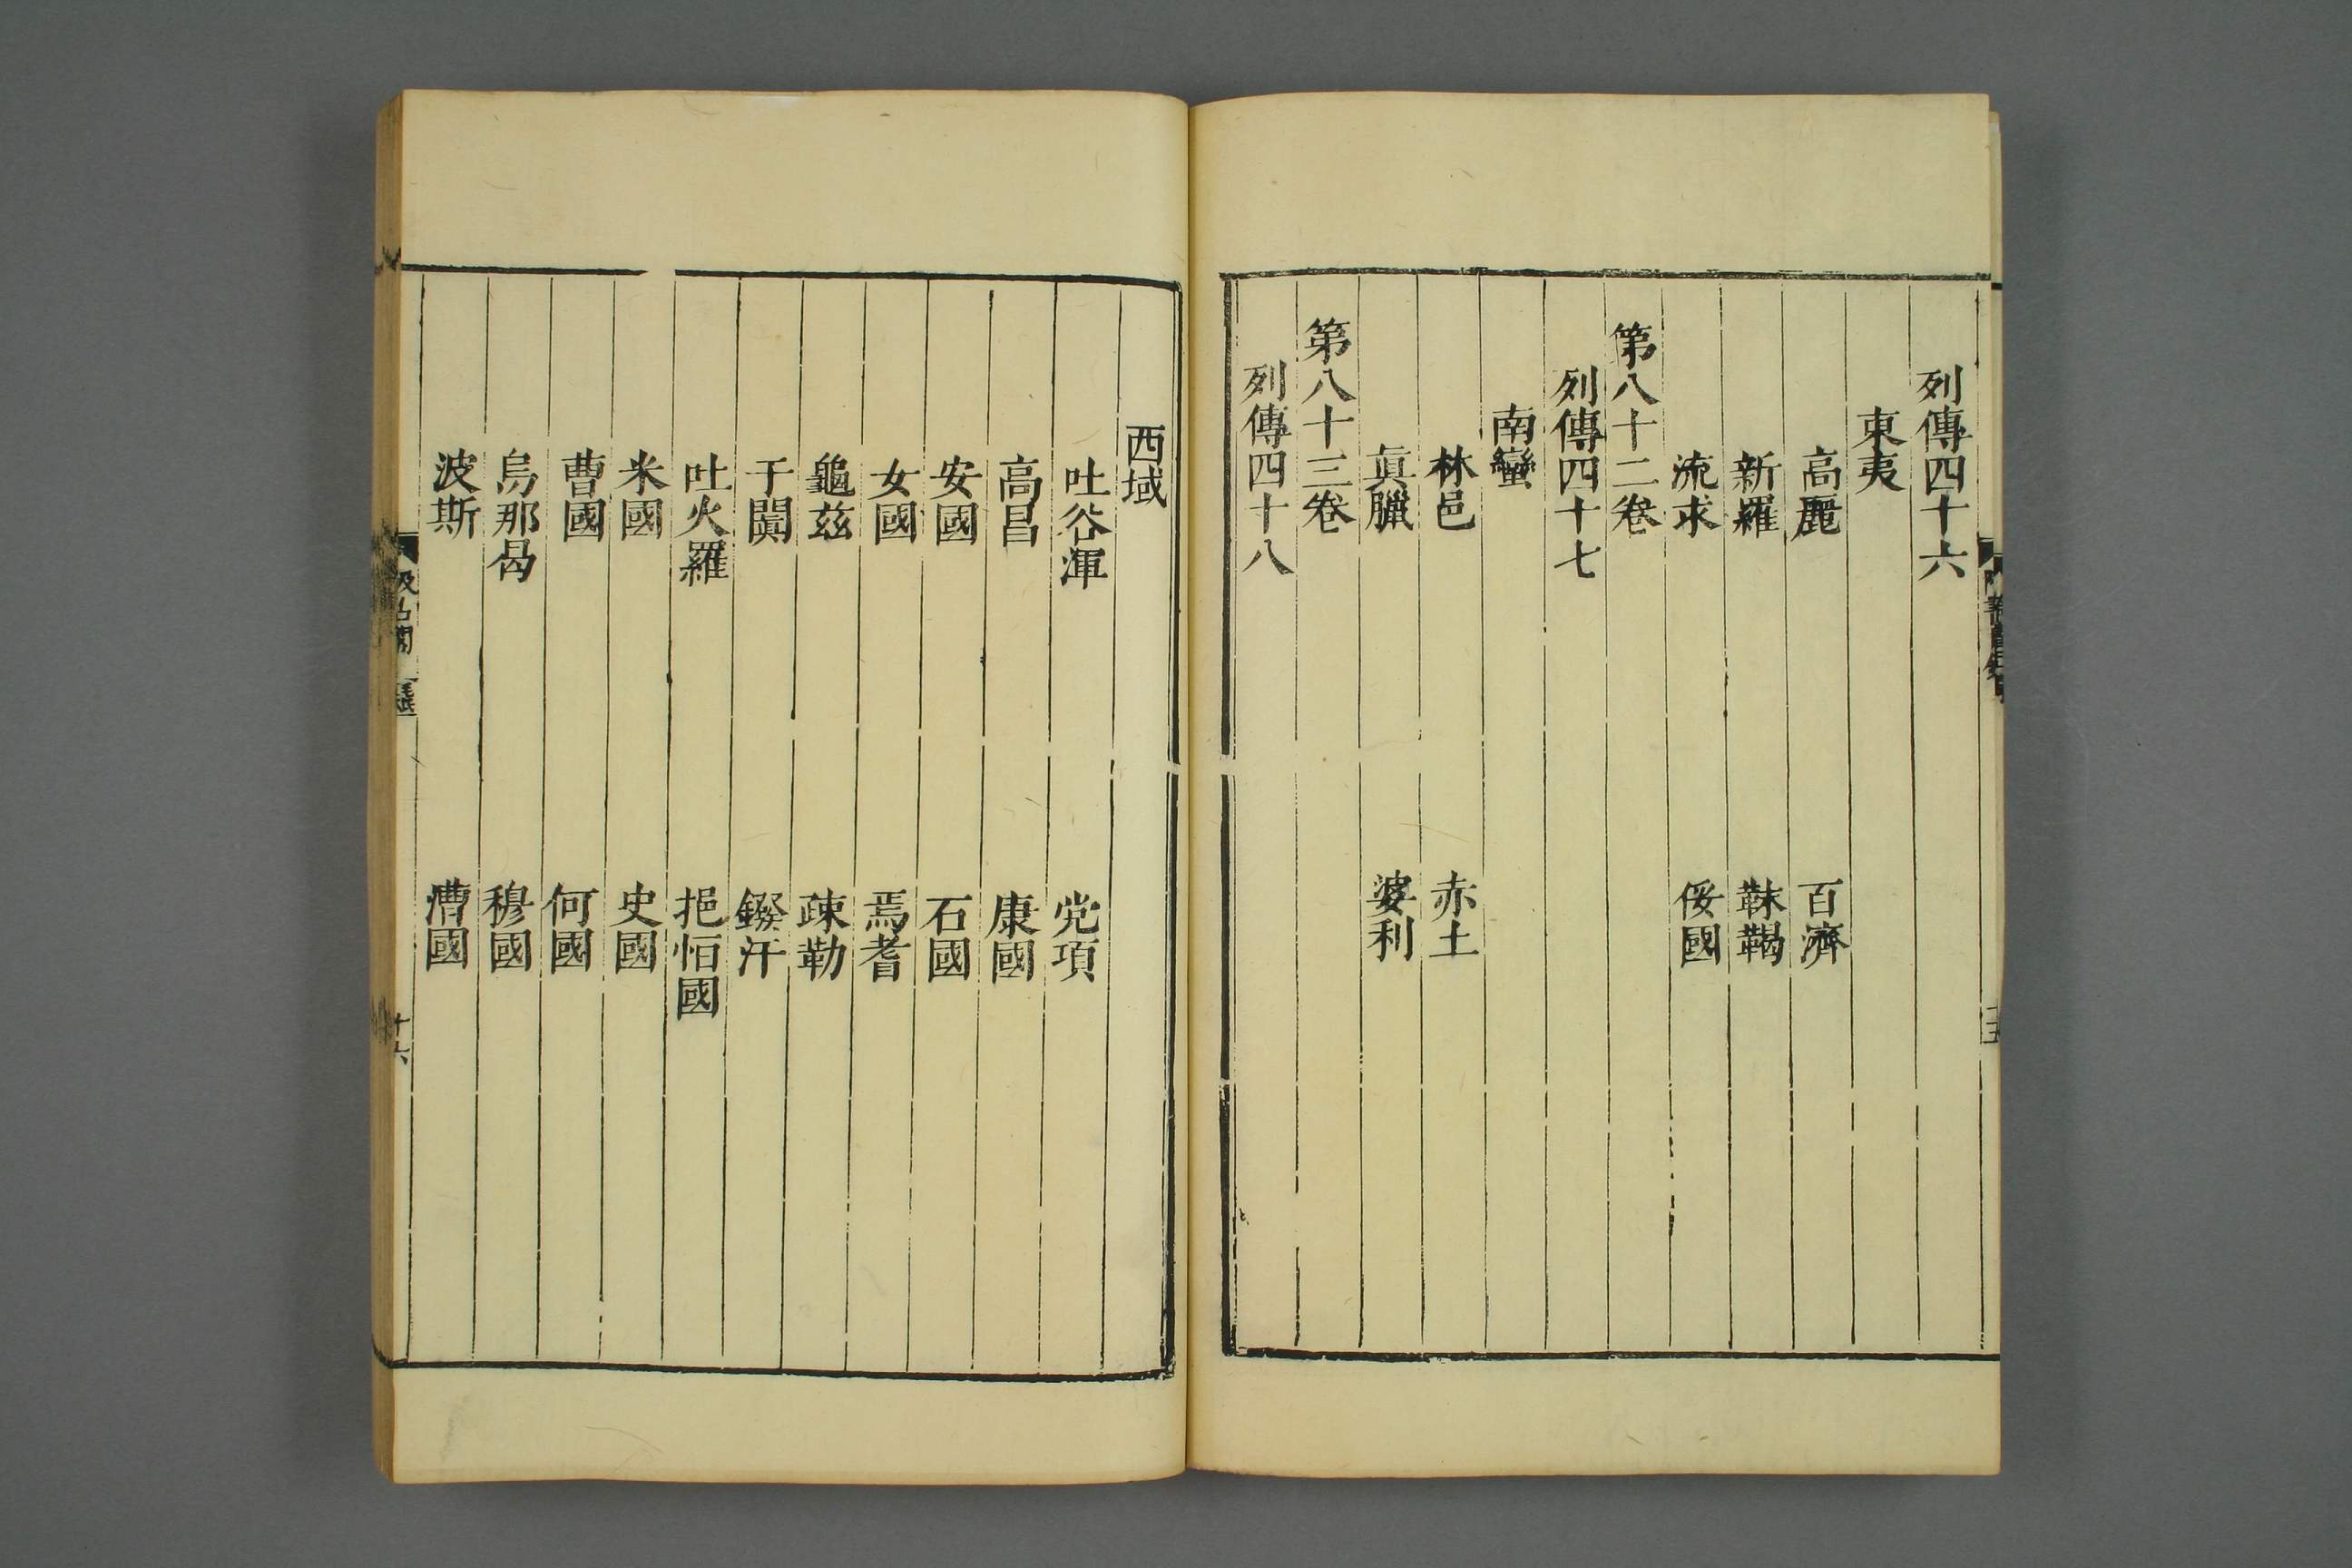 列傳四十六
東夷
高麗 百濟
新羅 靺鞨
流求 倭國
第八十二卷
列傳四十七
南蠻
林邑 赤土
眞臘 婆利
第八十三卷
列傳四十八
西域
吐谷渾 党項
高昌 康國
安國 石國
女國 焉耆
龜茲 疎勒
于闐 鏺汗
吐火羅 挹怛國
米國 史國
曹國 何國
烏那曷 穆國
波斯 漕國
十六